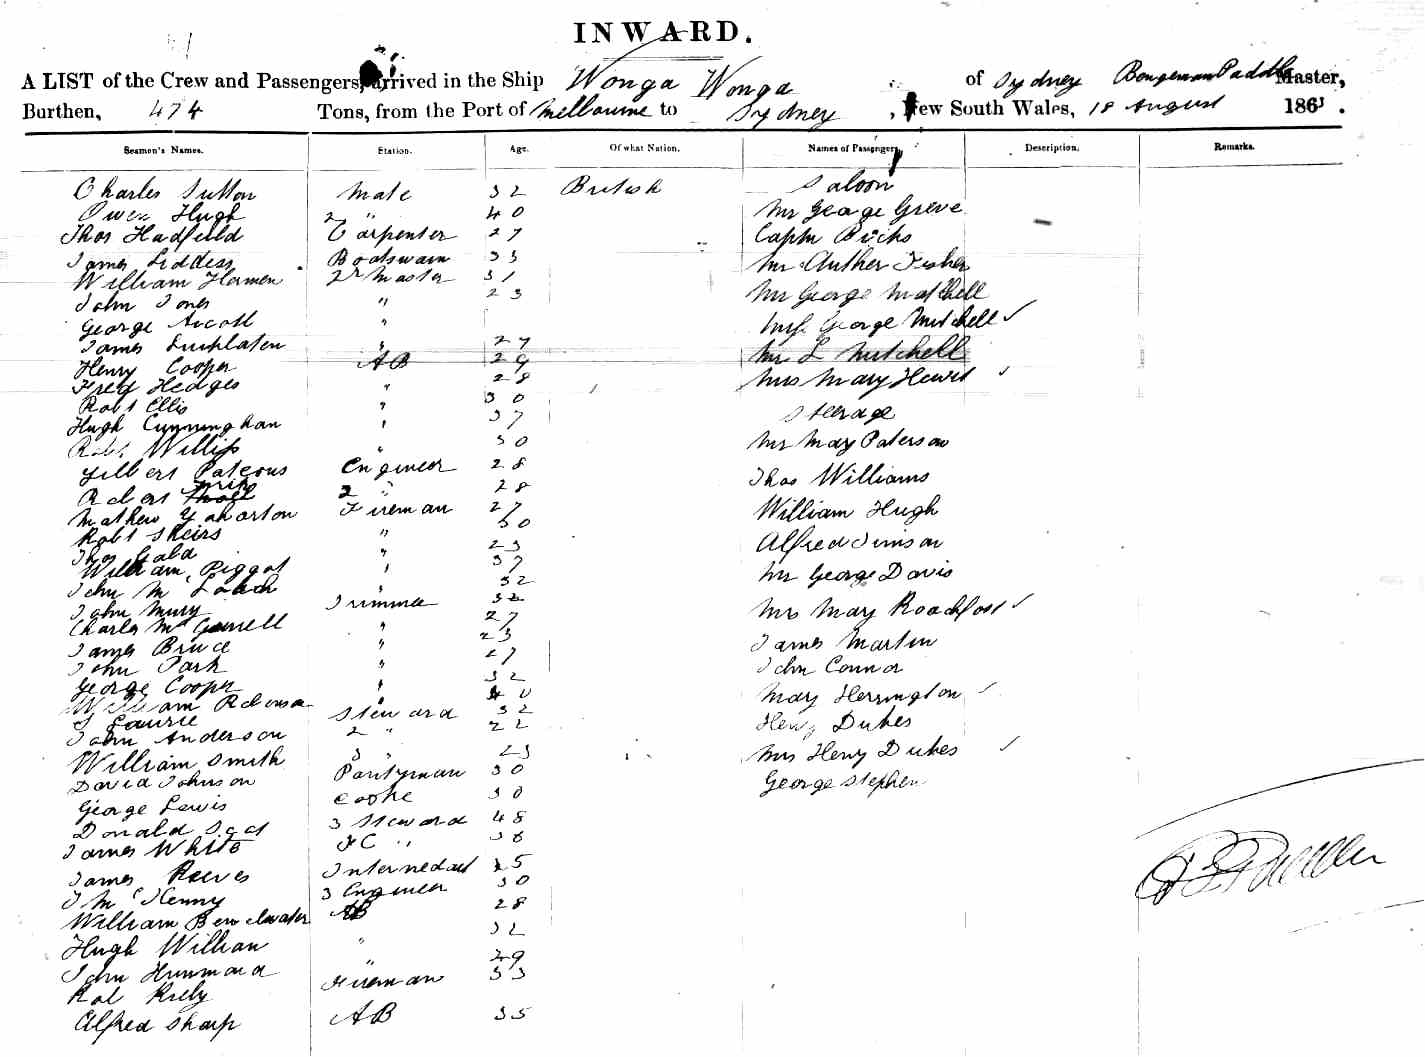 INWARD.
A LIST of the Crew and Passengers, arrived in the Ship Wonga Wonga of Sydney Master,
Burthen, 474 Tons, from the Port of Melbourne to Sydney, New South Wales, 18 August 1861.
Seamen's Names. Station. Age. Of what Nation. Names of Passengers. Description. Remarks.
Charles Sutton Mate 32 British Saloon
Owen Hugh 2 " 40 Mr George Greve
Thos Hadfield Carpenter 27 Captn
James Liddess Boatswain 33 Mr Auther Fisher
William Harmen 2r Master 31
John Jones " 23 Mr George Mitchell
George " George Mitchell ✓
James " 27
Henry Cooper AB 29 Mr L Mitchell
Fred Hedges " 28 Mrs Mary ✓
Robt Ellis " 30
Hugh Cunninghan " 37 Steerage
Robt " 30 Mrs May Paterson
Gilbert Engineer 28 Thos Williams
Robert 2 " 28
Mathew Fireman 27 William Hugh
Robt Sheirs " 30
Thos Gald " 23 Alfred
William Piggot " 37 Mr George Davis
John M " 32
John Mury Trimmer 32 Mrs May Roachfort ✓
Charles Mc " 27
James Bruce " 23 James Martin
John Park " 27 John Connor
George Cooper " 32
William Robinson " 40 Mary Herrington ✓
J Laurie Steward 32 Henry Dukes
John Anderson 2 " 22
William Smith 3 " 23 Mrs Heny Dukes ✓
David Johnson Pantyman 30 George Stephen
George Lewis Cooke 30
Donald 3 Steward 48
James White FC " 36
James Reeves 25
J McKenny 3 Engineer 30
William AB 28
Hugh Willian " 32
John " 29
Rob Fireman 33
Alfred Sharp AB 35